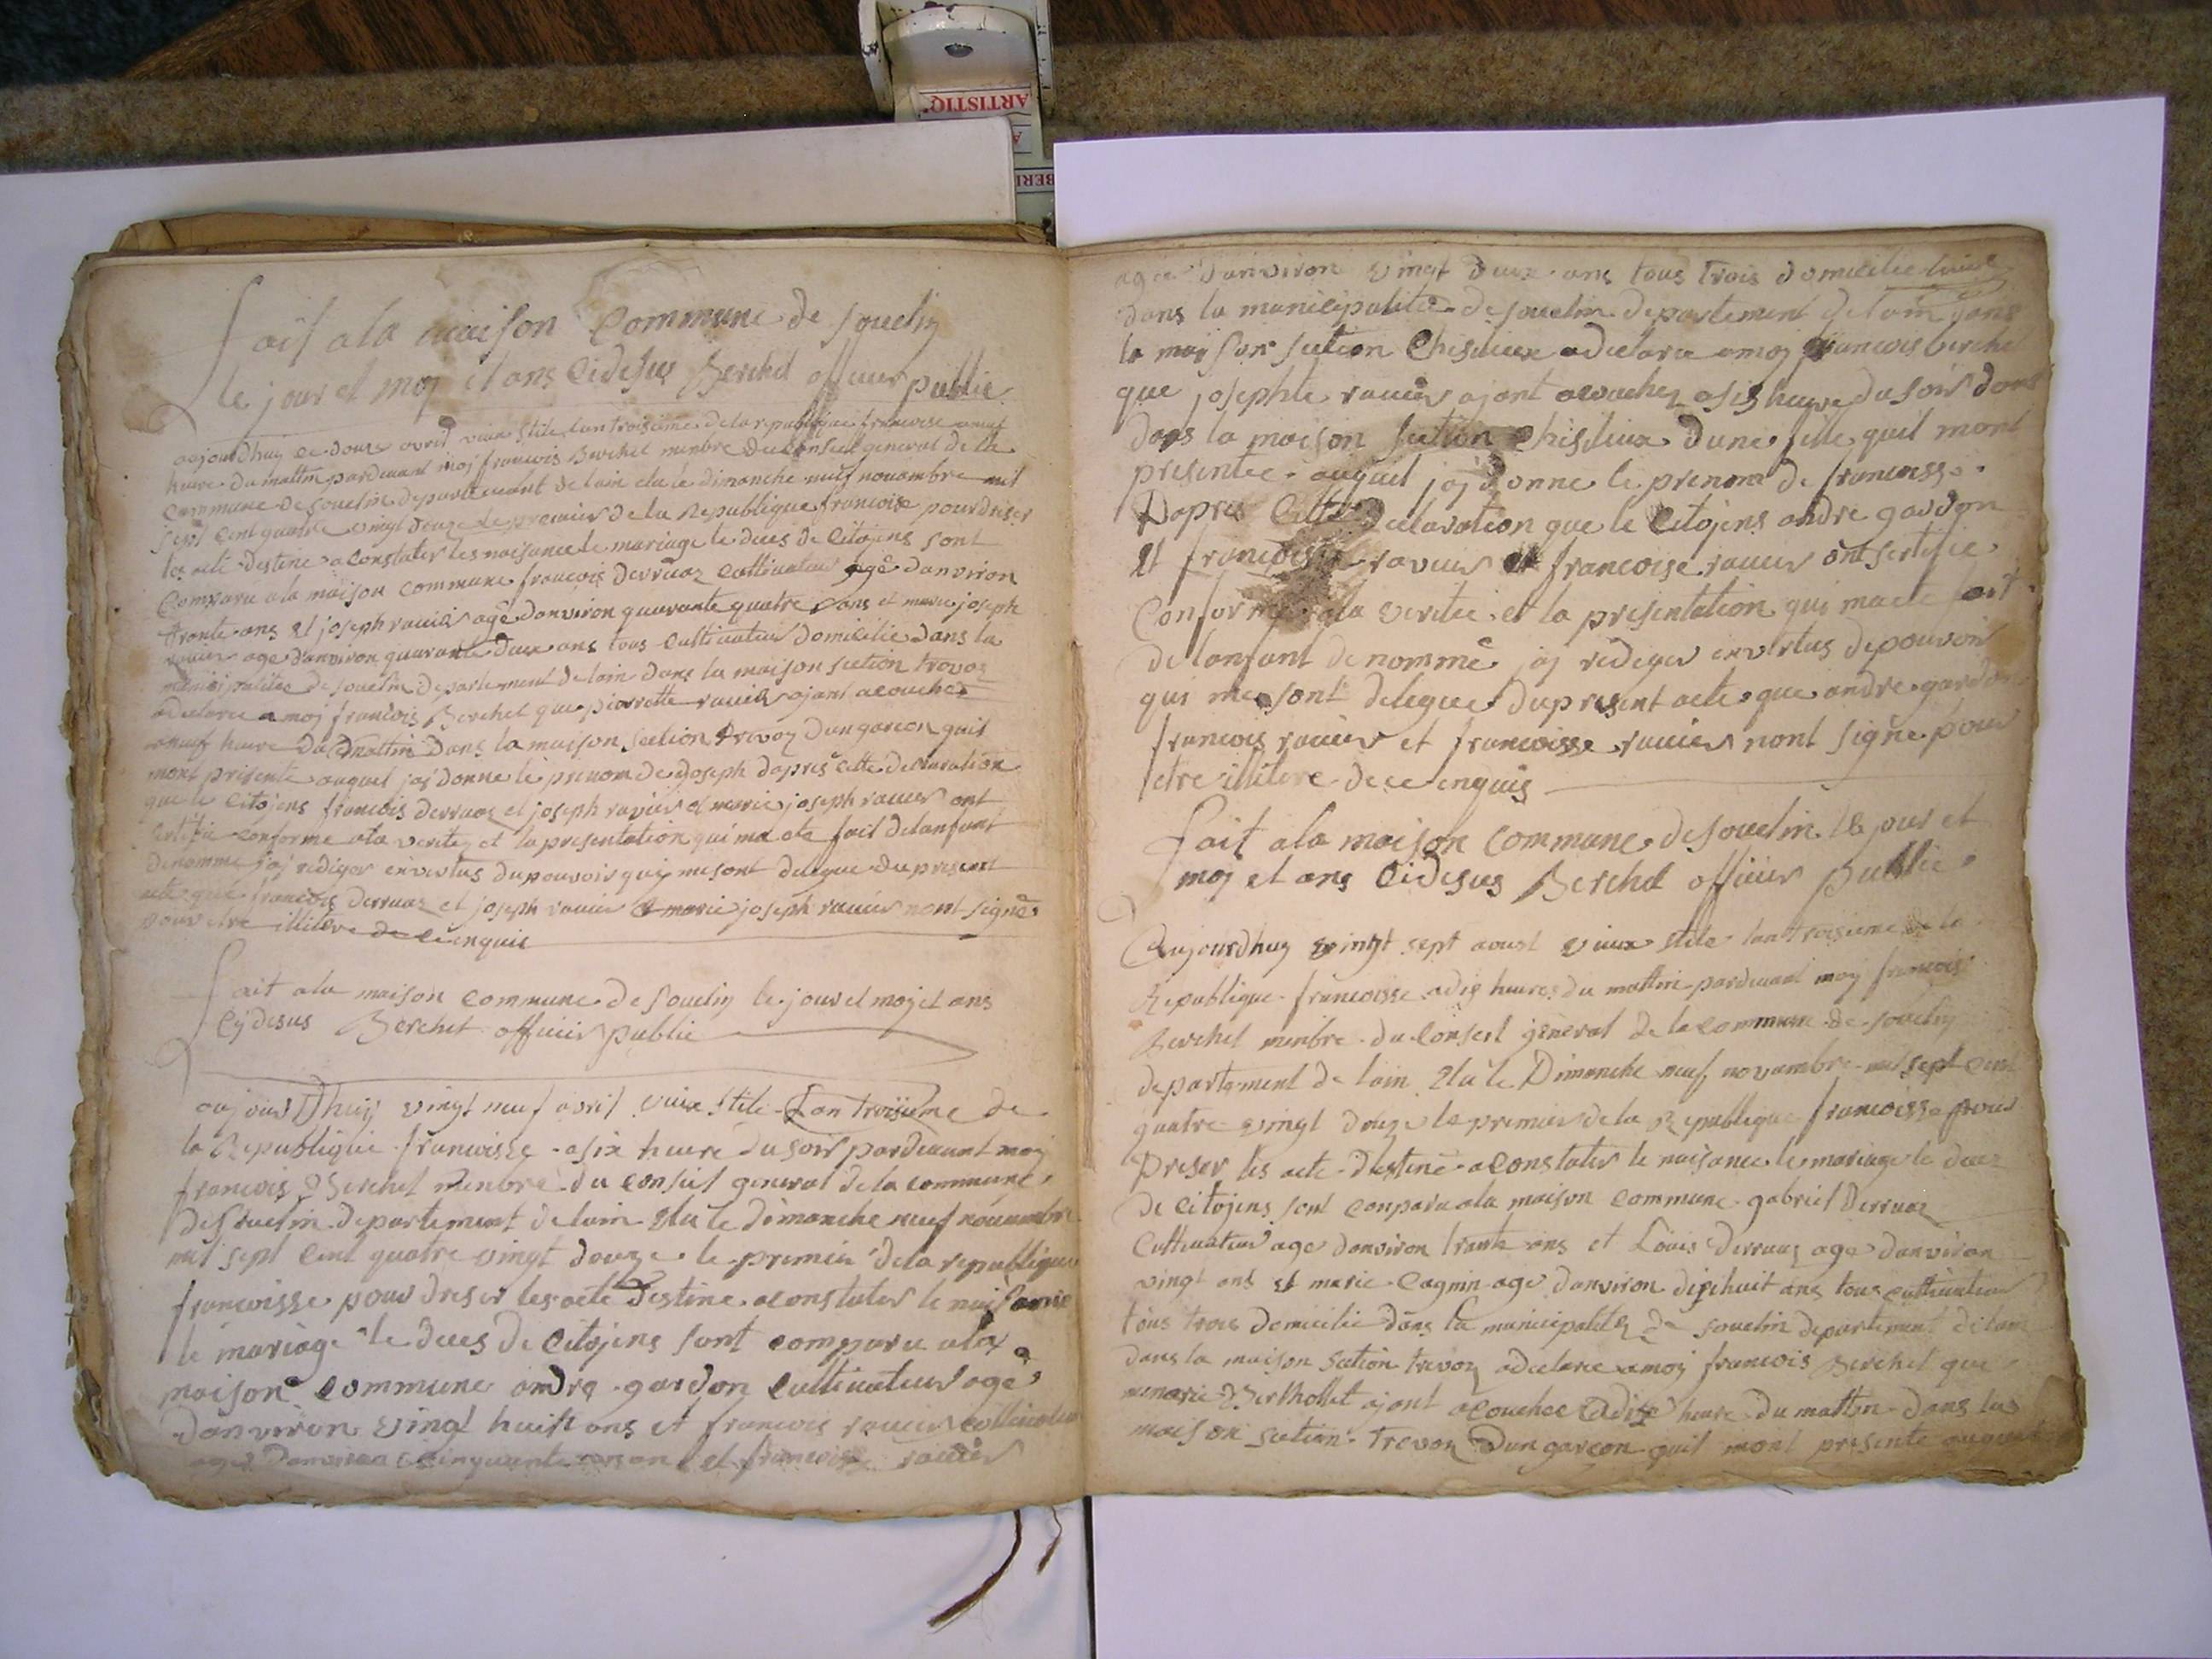 ARTISTIQ
BERI
fait ala maison Commune de souclin
le jour et moj et ans Cidesus Berchet officier public
aujourdhuy ce douze avril vieux stile lan troisieme de la republique francoise a neuf
heure du mattin pardevant moj francois Berchet menbre du Conseil general de la
commune de souclin departement de lain elu le dimanche neuf novambre mil
sept cent quatre vingt douze le premier de la Republique francoise pour dreser
les acte destine a Constater les naisance le mariage le deces de Citojens sont
Comparu ala maison commune francois derruaz cultivateur agé danviron
trante ans et joseph ravier agé danviron quarante quatre ans et marie joseph
ravier age danviron quarante deux ans tous cultivateur domicilié dans la
municipalitee de souclin departement de lain dans la maison section trevoz
a declaree a moj francois Berchet que pierrette ravier ajant acouchee
a neuf heure du mattin dans la maison section trevoz dun garcon quil
mont presente auquel jaj donne le prenom de joseph dapres cette declaration
que le Citojens francois derruaz et joseph ravier et marie joseph ravier ont
certifie conforme ala veritez et la presentation qui ma ete fait de lanfant
denomme jaj rediger envertus du pouvoir qui me sont delegue du present
acte que francois derruaz et joseph ravier et marie joseph ravier nont signés
pour etre illitere de ce enquis
fait ala maison commune de souclin le jour et moj et ans
Cydesus Berchet officier public
aujourdhuij vingt neuf avril vieux stile Lan troisieme de
la Republique francoisse a six heure du soir pardevant moj
francois Berchet menbre du conseil general de la commune
de souclin departement de lain elu le dimanche neuf novambre
mil sept cent quatre vingt douze le premier de la republique
francoisse pour dreser les acte destine a constater le naisance
le mariage le deces de Citojens sont comparu ala
maison commune andre gardon cultivateur age
danviron vingt huist ans et francois ravier cultivateur
age danviron cinquante ans et francoise ravier
agee danviron vingt deux ans tous trois domicilie
dans la municipalitée de souclin departement de lain dans
la maison section Chisilieux a declaree a moj francois berchet
que josephte ravier ajant acouchez a six heure du soir dans
dans la maison section Chisilieux dune fille quil mont
presentee auquel jaj donne le prenom de francoisse
Dapres Cette declaration que le Citojens andre gardon
Et francois ravier et francoise ravier ont sertifie
Conforme ala veritee et la presentation qui ma ete fait
de lanfant denommé jaj rediger envertus de pouvoir
qui me sont deleguee du present acte que andre gardon
francois ravier et francoisse ravier nont signe pour
etre illitere de ce enquis
fait ala maison commune de souclin le jour et
moj et ans Cidesus Berchet officier Public
Aujourdhuy vingt sept aoust vieux stile lan troisieme de la
Republique francoisse a dix heures du mattin pardevant moj francois
Berchet menbre du Conseil géneral de la commune de souclin
departement de lain Elu le Dimanche neuf novambre mil sept cent
quatre vingt douze le premier de la Republique francoisse pour
Dreser les acte destiné a Constater le naisance le mariage le deces
de Citojens sont conparu ala maison commune gabriel Derruaz
Cultivateur age danviron trante ans et Louis derruaz age danviron
vingt ans et marie Cagnin age danviron dixhuit ans tous cultivateur
tous trois domicilie dans la municipalitez de souclin departement de lain
dans la maison section trevoz a declaree a moj francois Berchet que
marie Berthollet ajant acouchee a dix heure du mattin dans la
maison section trevoz dun garcon quil mont presente auquel